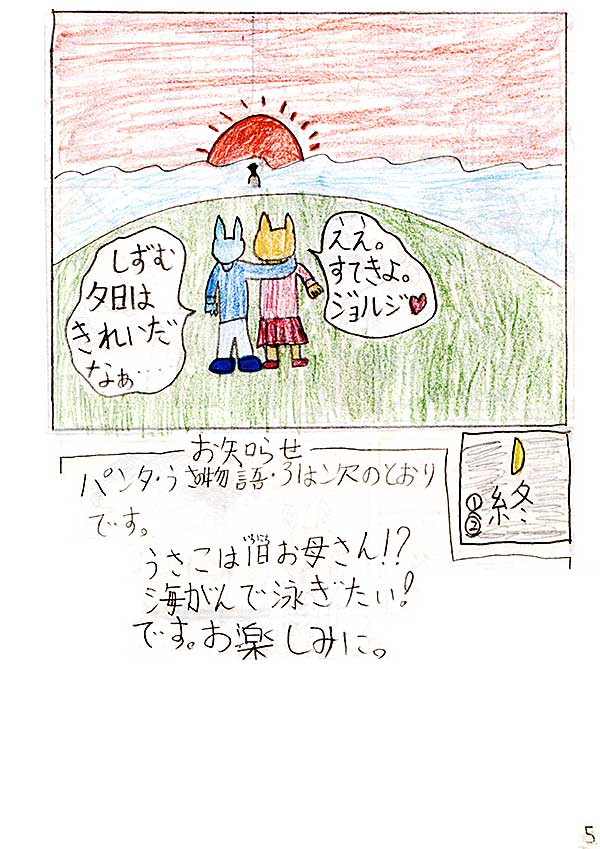 ええ。
すてきよ。
ジョルジ♥
しずむ
夕日は
きれいだ
なぁ‥‥
お知らせ
パンタ・うさ物語・3は次のとおり
です。
うさこはお母さん!?
海がんで泳ぎたい!
です。お楽しみに。
①
②
終
5